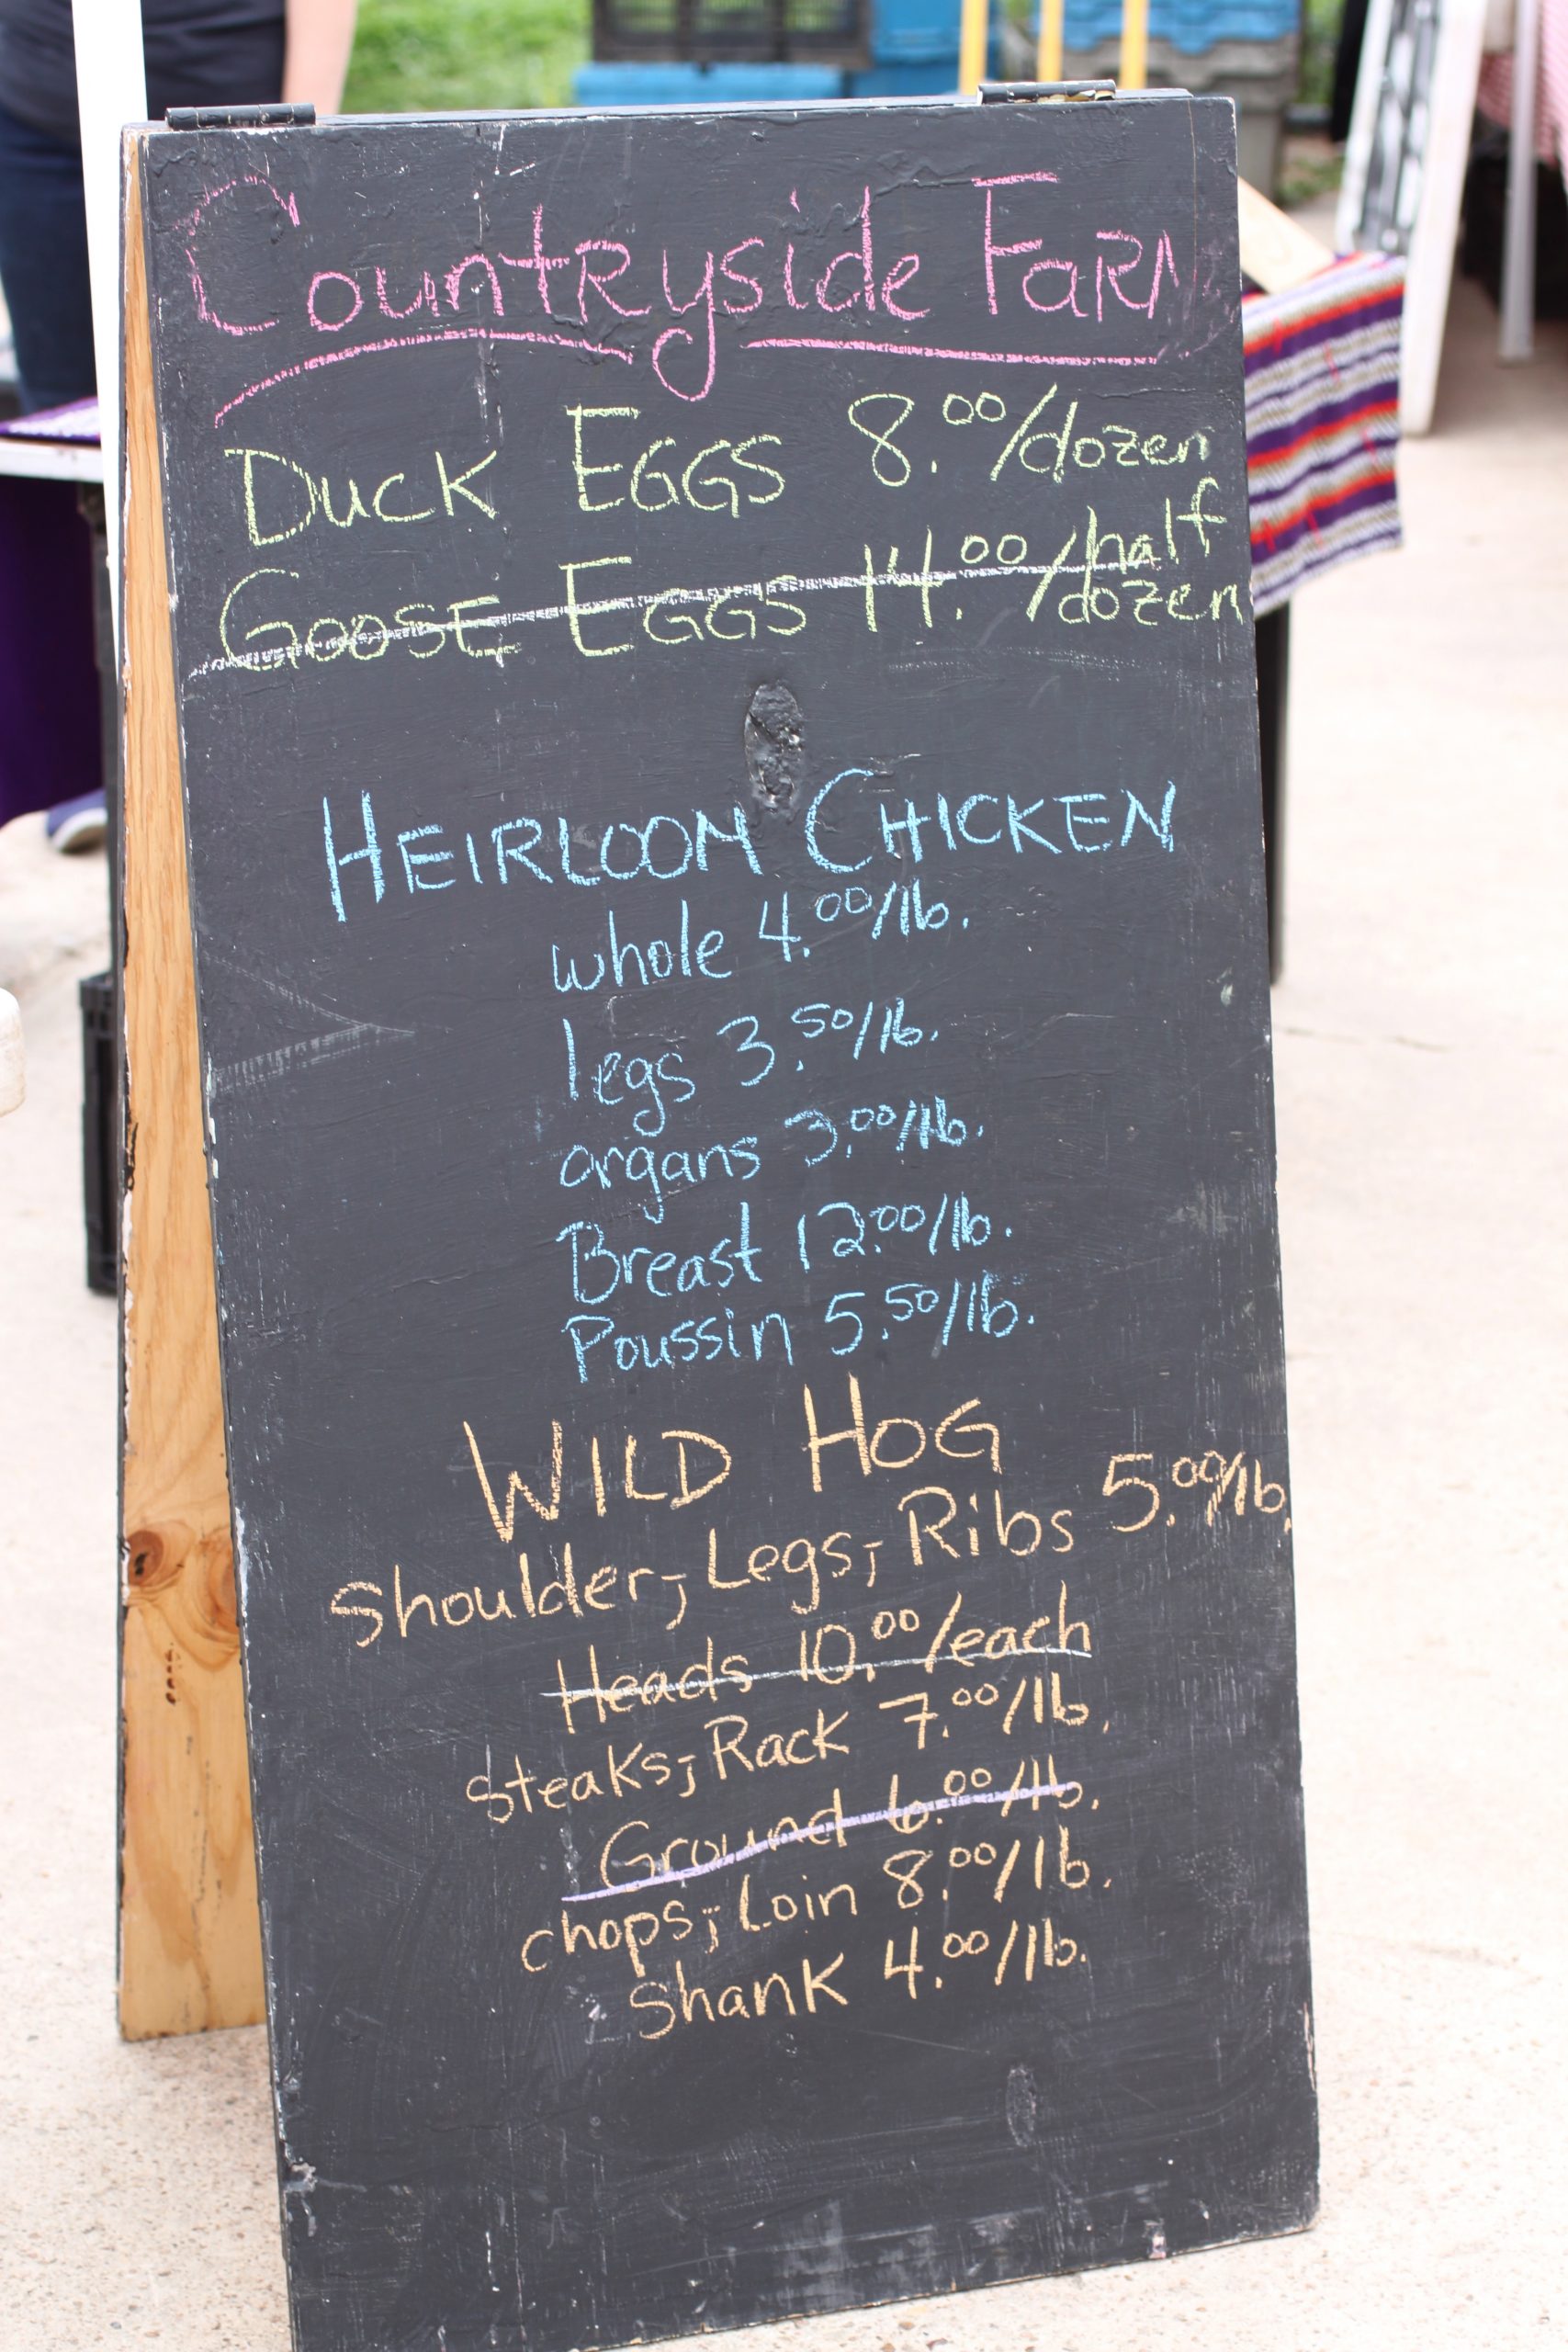 Countryside Farm
Duck Eggs 8.00/dozen
Goose Eggs 14.00/half dozen
HEIRLOOM CHICKEN
whole 4.00/lb.
legs 3.50/lb.
organs 3.00/lb.
Breast 12.00/lb.
Poussin 5.50/lb.
WILD HOG
Shoulder, Legs, Ribs 5.00/lb.
Heads 10.00/each
Steaks, Rack 7.00/lb.
Ground 6.00/lb.
chops, Loin 8.00/lb.
Shank 4.00/lb.